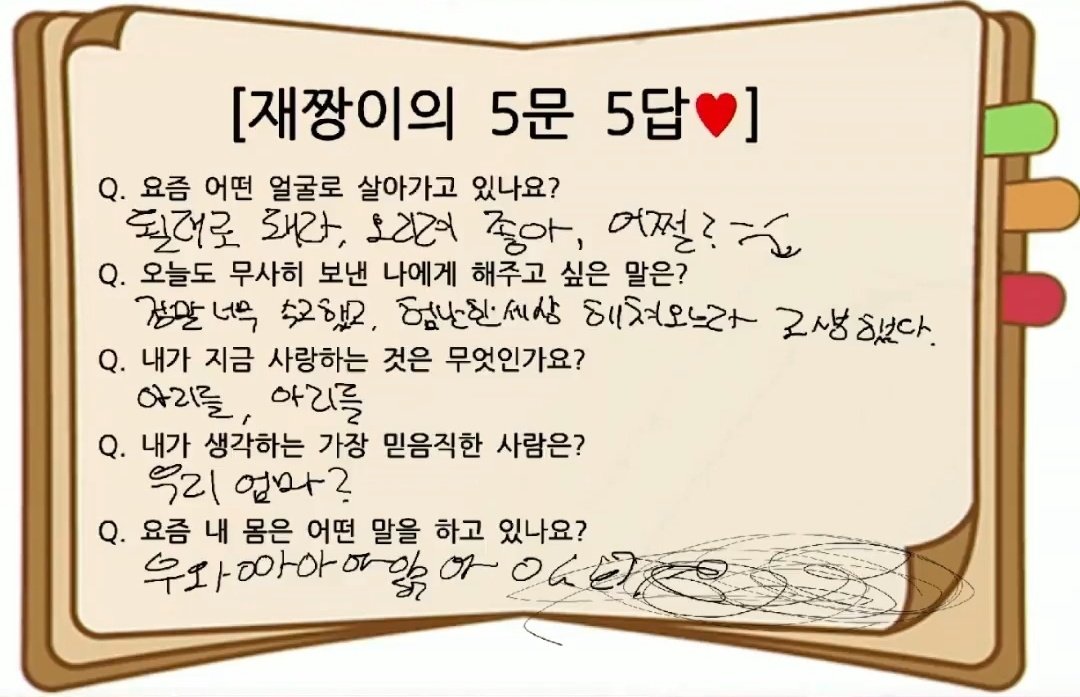 [재짱이의 5문 5답♥]
Q. 요즘 어떤 얼굴로 살아가고 있나요?
될대로 돼라, 오히려 좋아, 어쩔?
Q. 오늘도 무사히 보낸 나에게 해주고 싶은 말은?
정말 너무 수고했고, 험난한 세상 헤쳐오느라 고생했다.
Q. 내가 지금 사랑하는 것은 무엇인가요?
아리들, 아리들
Q. 내가 생각하는 가장 믿음직한 사람은?
우리 엄마?
Q. 요즘 내 몸은 어떤 말을 하고 있나요?
우와